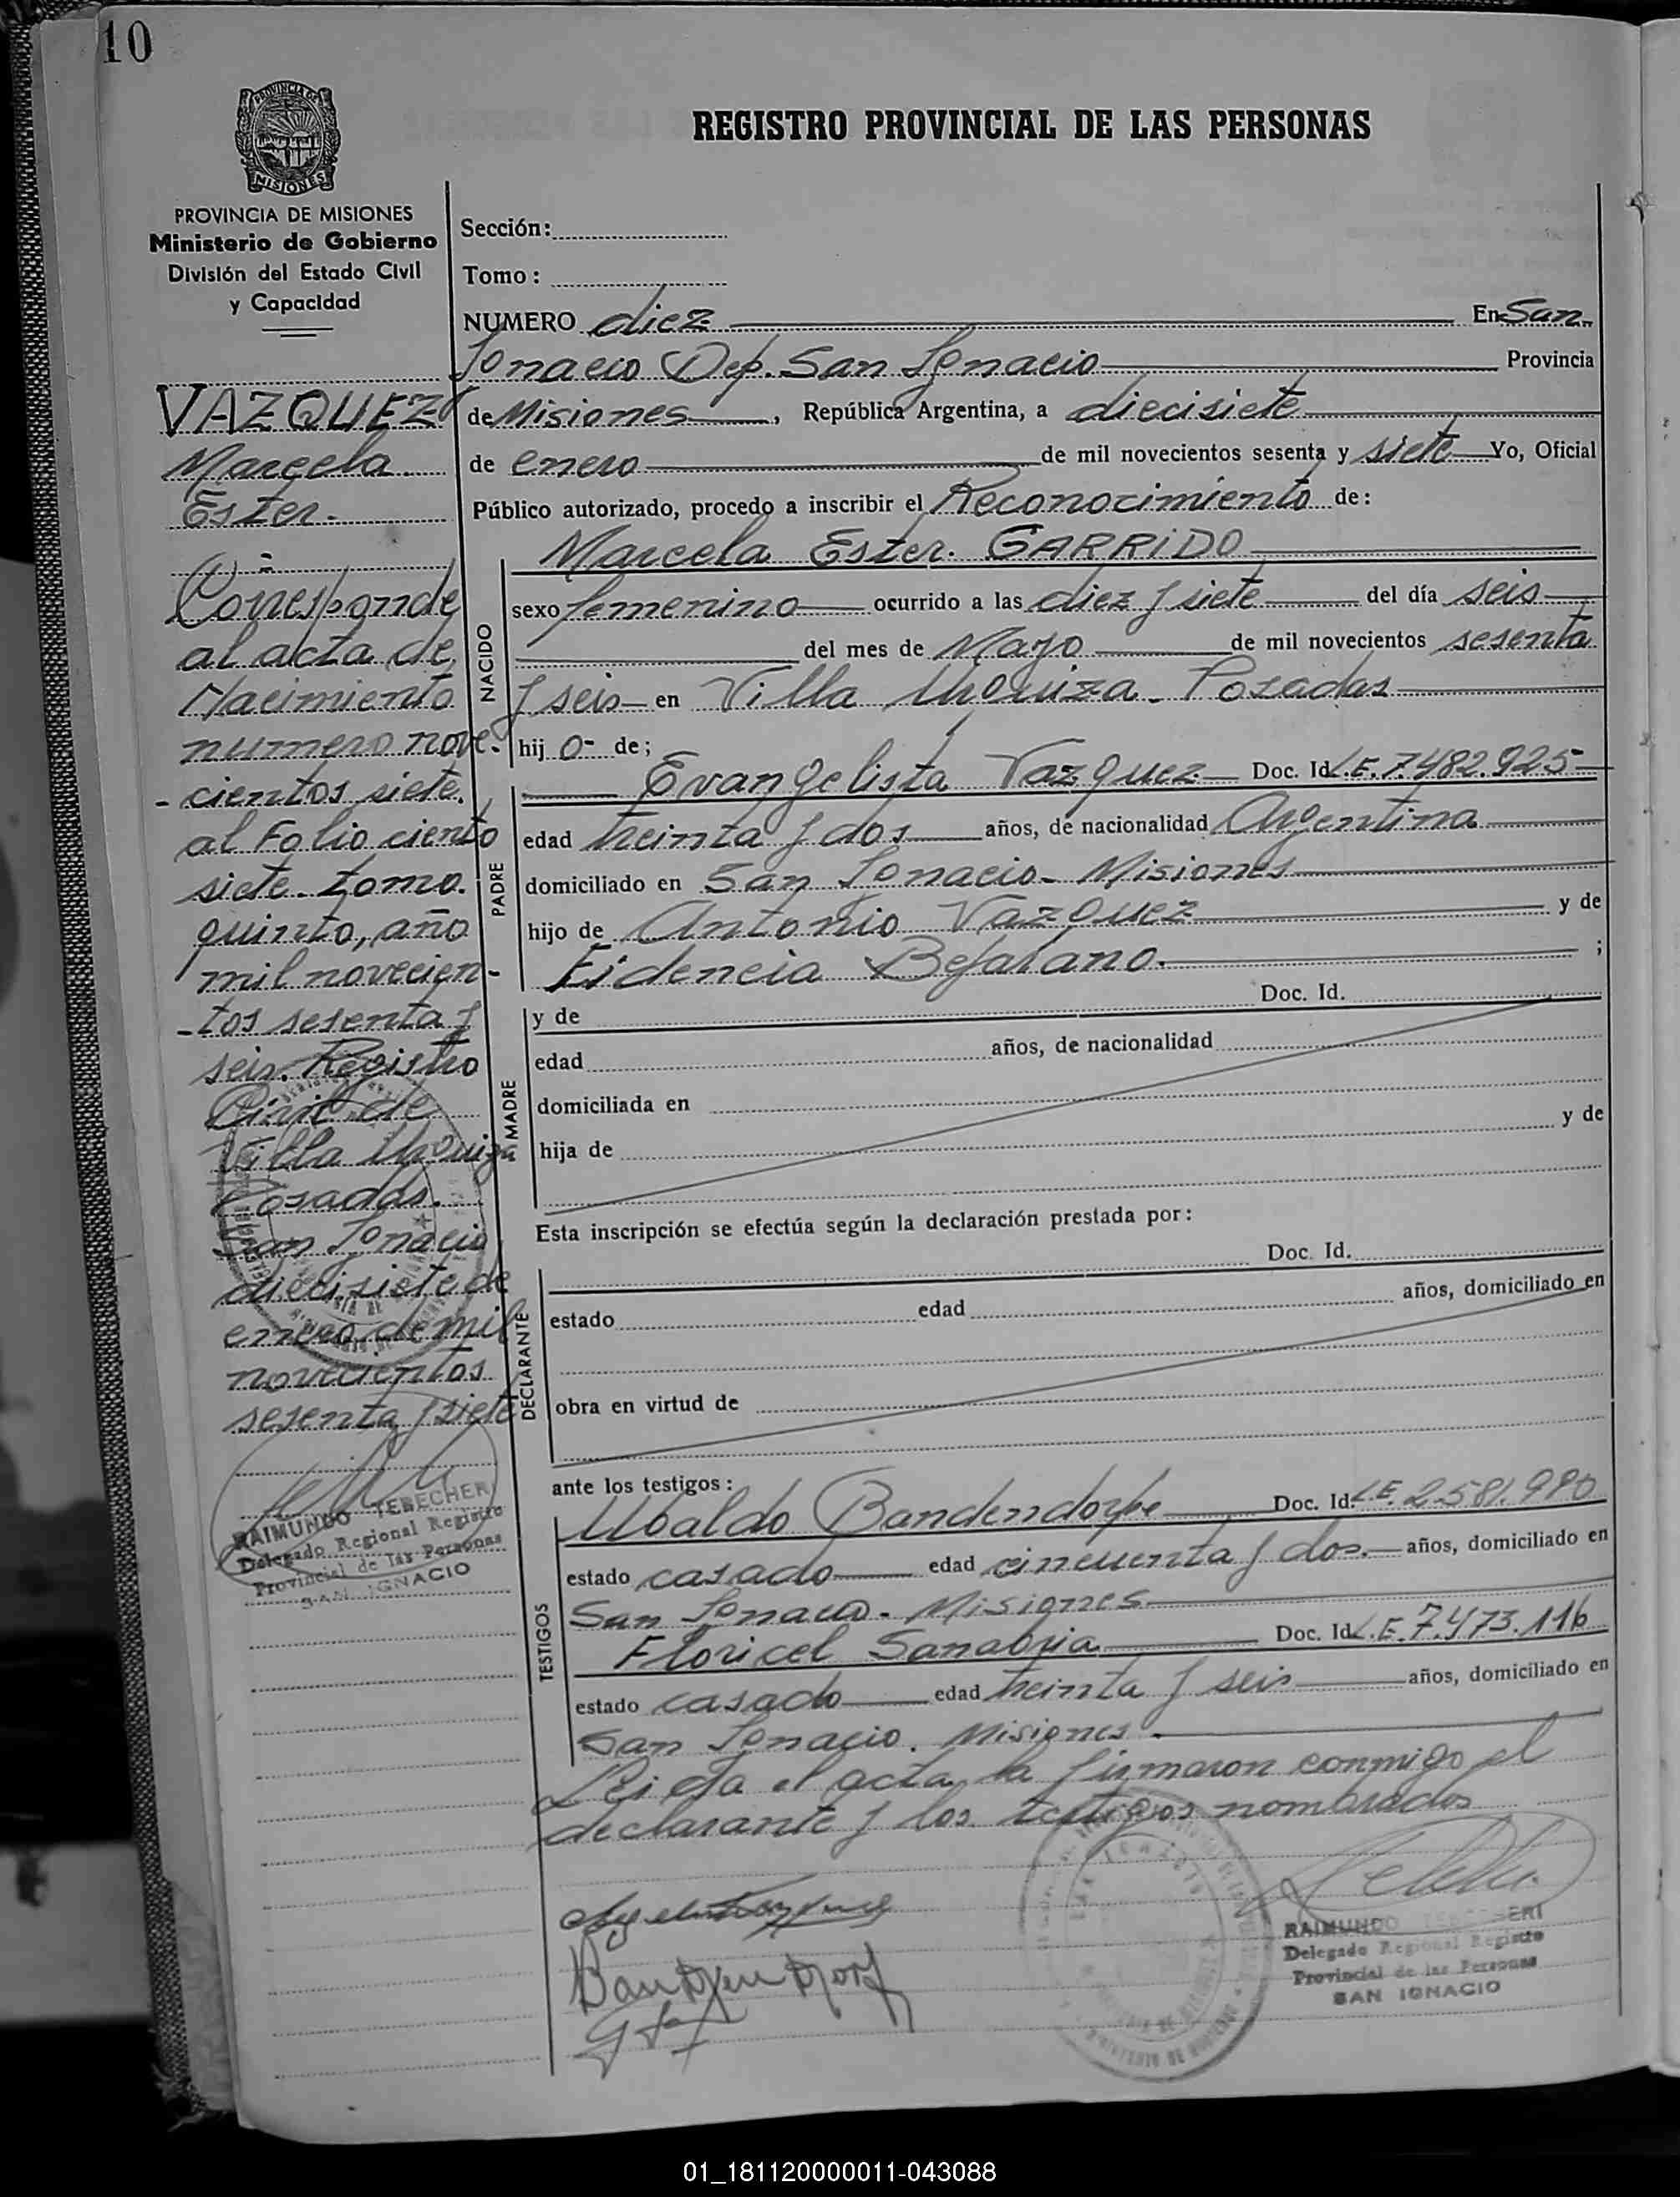 10
REGISTRO PROVINCIAL DE LAS PERSONAS
MISIONES
PROVINCIA DE MISIONES
Ministerio de Gobierno
División del Estado Civil
y Capacidad
VAZQUEZ
Marcela
Ester.-
Corresponde
al acta de
Nacimiento
numero nove-
-cientos siete.
al Folio ciento
siete. tomo.
quinto, año
mil novecien-
-tos sesenta y
seis. Registro
Civil de
Villa Urquiza
Posadas.
San Ignacio
diecisiete de
enero de mil
novecientos
sesenta y siete
RAIMUNDO TEBECHERI
Delegado Regional Registro
Provincial de las Personas
SAN IGNACIO
Sección:
Tomo:
NUMERO diez En San
Ignacio Dep. San Ignacio Provincia
de Misiones, República Argentina, a diecisiete
de enero de mil novecientos sesenta y siete Yo, Oficial
Público autorizado, procedo a inscribir el Reconocimiento de:
Marcela Ester. GARRIDO
NACIDO
sexo femenino ocurrido a las diez y siete del día seis
del mes de Mayo de mil novecientos sesenta
y seis en Villa Urquiza - Posadas
hij o- de;
PADRE
Evangelista Vazquez Doc. Id. L.E. 7.482.925
edad treinta y dos años, de nacionalidad Argentina
domiciliado en San Ignacio - Misiones
hijo de Antonio Vazquez y de
Fidencia Bejarano. ;
MADRE
y de Doc. Id.
edad años, de nacionalidad
domiciliada en
hija de y de
Esta inscripción se efectúa según la declaración prestada por:
DECLARANTE
Doc. Id.
estado edad años, domiciliado en
obra en virtud de
ante los testigos:
TESTIGOS
Ubaldo Bandendorpe Doc. Id. L.E. 2.581.980
estado casado edad cincuenta y dos. años, domiciliado en
San Ignacio - Misiones
Floricel Sanabria Doc. Id. L.E. 7.473.116
estado casado edad treinta y seis años, domiciliado en
San Ignacio. Misiones.
Leida el acta, la firmaron conmigo el
declarante y los testigos nombrados
RAIMUNDO TEBECHERI
Delegado Regional Registro
Provincial de las Personas
SAN IGNACIO
01_181120000011-043088